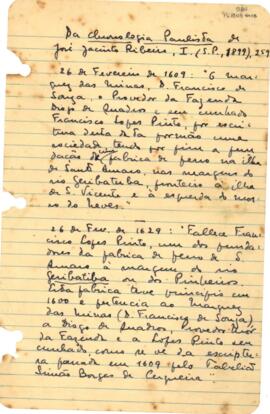 Da Chronologia Paulista de
José Jacinto Ribeiro, I. (S.P., 1899), 259
26 de Fevereiro de 1609: "O mar-
quez das Minas, D. Francisco de
Souza, o Provedor da Fazenda
Diogo de Quadros e seu cunhado
Francisco Lopes Pinto, por escri-
ptura desta data formão uma
sociedade tendo por fim a fun-
dação da fabrica de ferro na ilha
de Santo Amaro, nas margens do
rio Geribatuba, fronteira á ilha
de S. Vicente e á esquerda do mor-
ro do Neves."
26 de Fev. de 1629: "Fallece Fran-
cisco Lopes Pinto, um dos funda-
dores da fabrica de ferro de S.
Amaro á margem do rio
Geribatiba ou dos Pinheiros.
Esta fabrica teve principio em
1600 e pertencia ao Marquez
das Minas (D. Francisco de Souza)
a Diogo de Quadros, Provedor Mór
da Fazenda e a Lopes Pinto seu
cunhado, como se vê da escriptu-
ra passada em 1609 pelo Tabellião
Simão Borges de Cerqueira."